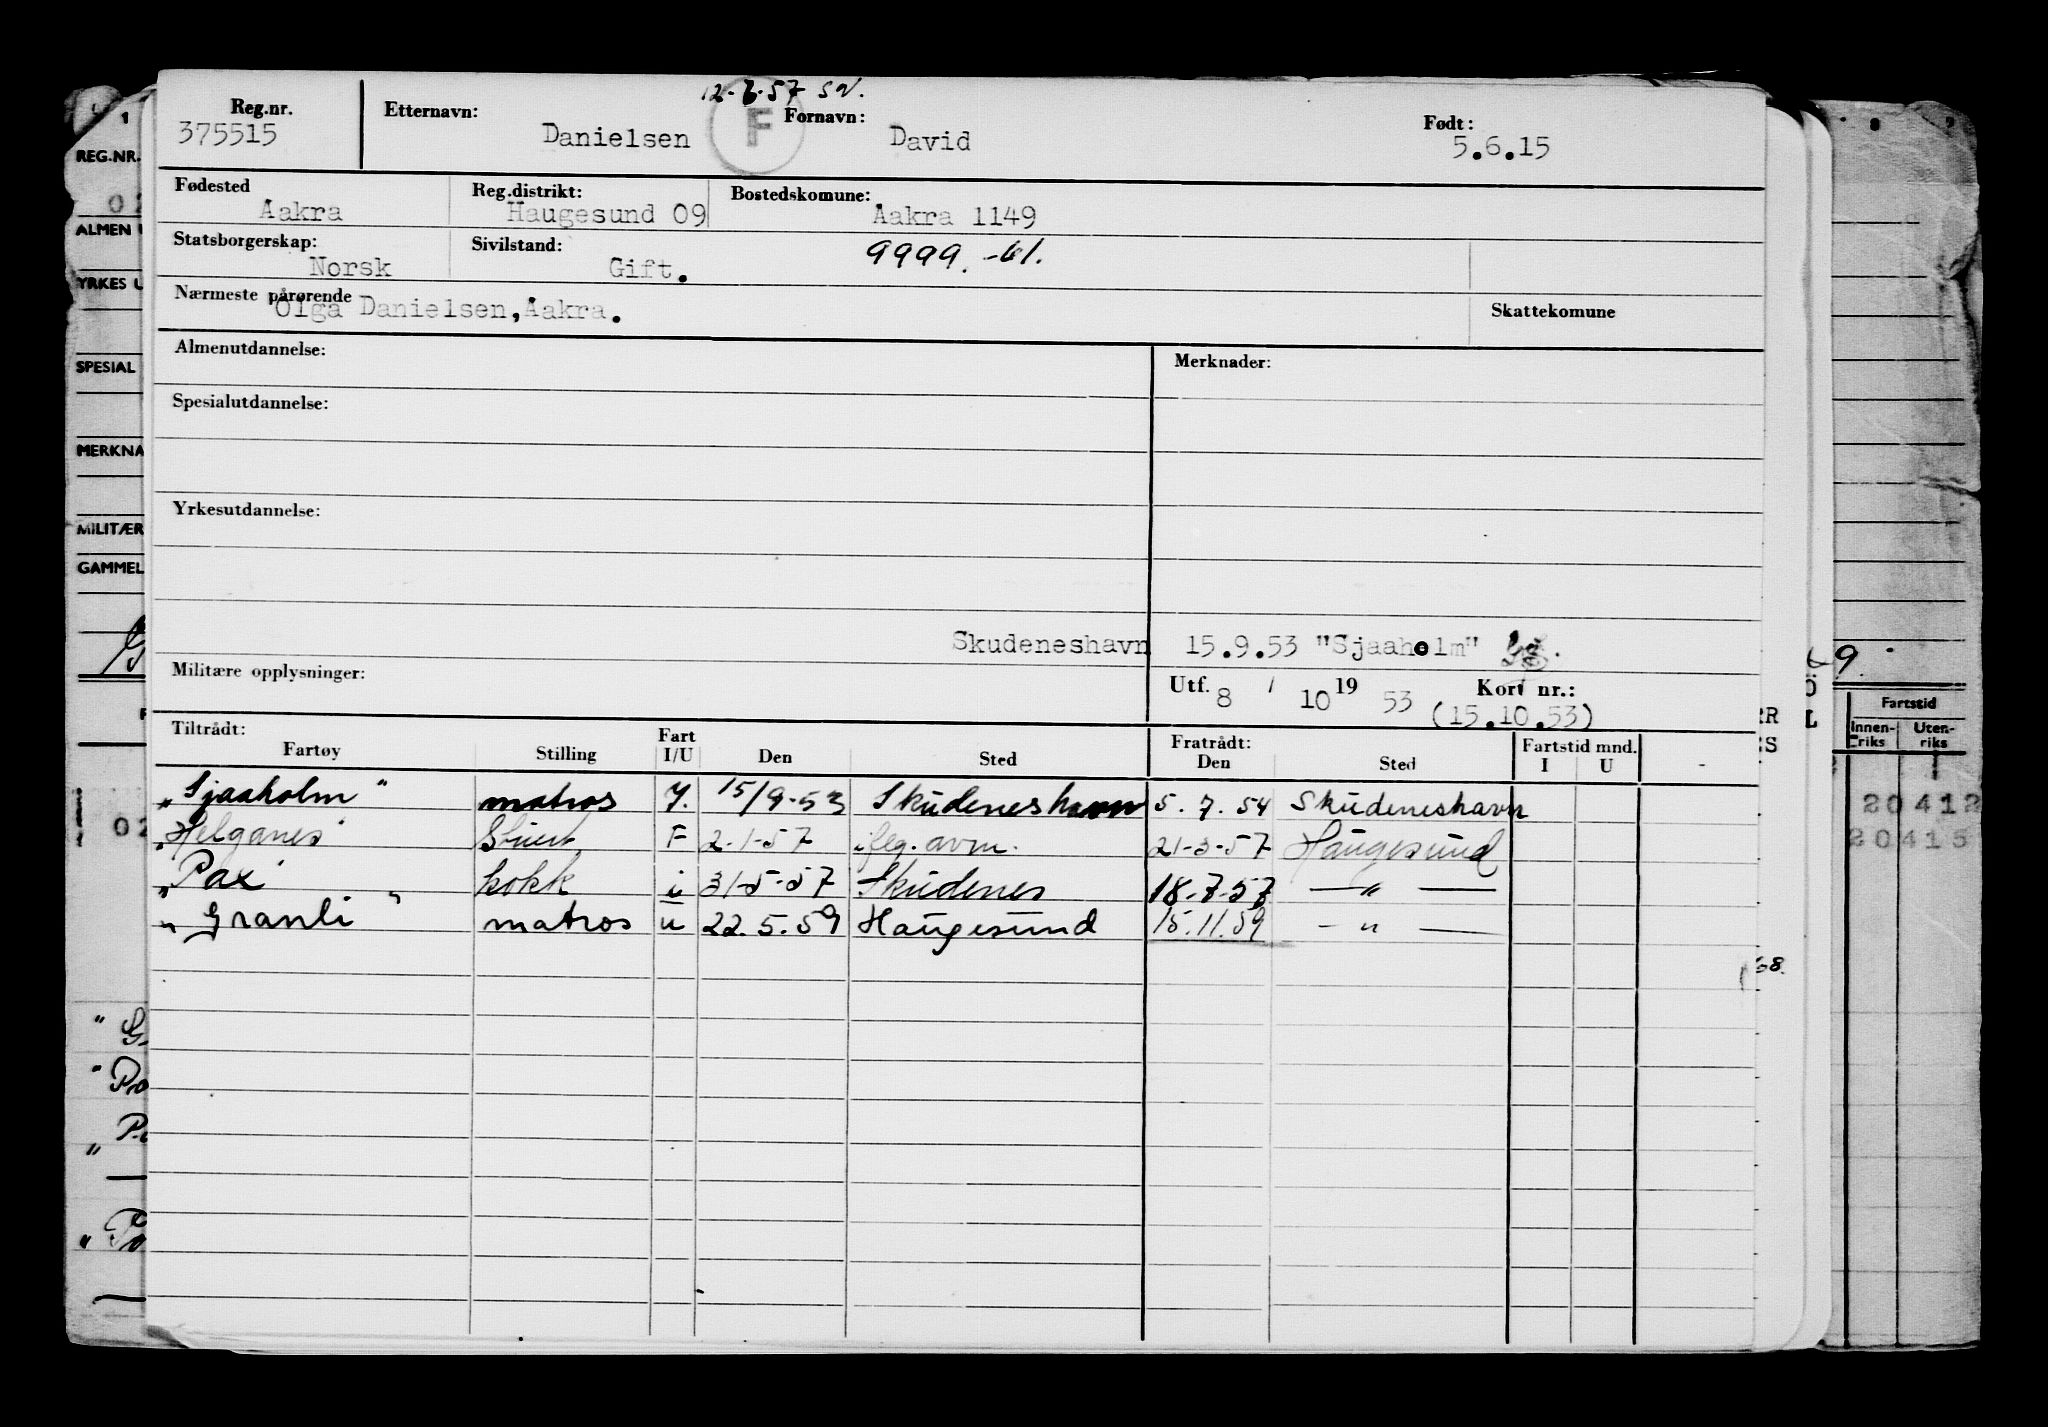 12-7-57 SV.
Reg.nr. Etternavn: F Fornavn: Født:
375515 Danielsen David 5.6.15
Fødested Reg.distrikt: Bostedskomune:
Aakra Haugesund 09 Aakra 1149
Statsborgerskap: Sivilstand: 9999.-61.
Norsk Gift.
Nærmeste pårørende Skattekomune
Olga Danielsen, Aakra.
Almenutdannelse: Merknader:
Spesialutdannelse:
Yrkesutdannelse:
Skudeneshavn 15.9.53 "Sjaaholm"
Militære opplysninger: Utf. 8 / 10 19 53 Kort nr.:
(15.10.53)
Tiltrådt: Fart Fratrådt: Fartstid mnd.
Fartøy Stilling I/U Den Sted Den Sted I U -
"Sjaaholm" matros I. 15/9-53 Skudeneshavn 5.7.54 Skudeneshavn
"Helganes" Stuert F 2-1-57 iflg. avm. 21-3-57 Haugesund
"Pax" kokk i 31-5-57 Skudenes 18-7-57 — " —
"Granli" matros u 22.5.59 Haugesund 15.11.59 — " —
REG.NR.
ALMEN U
YRKES U
SPESIAL
MERKNA
MILITÆR
GAMMEL
9.
Fartstid
Innen-riks Uten-riks
20412
20415
68.